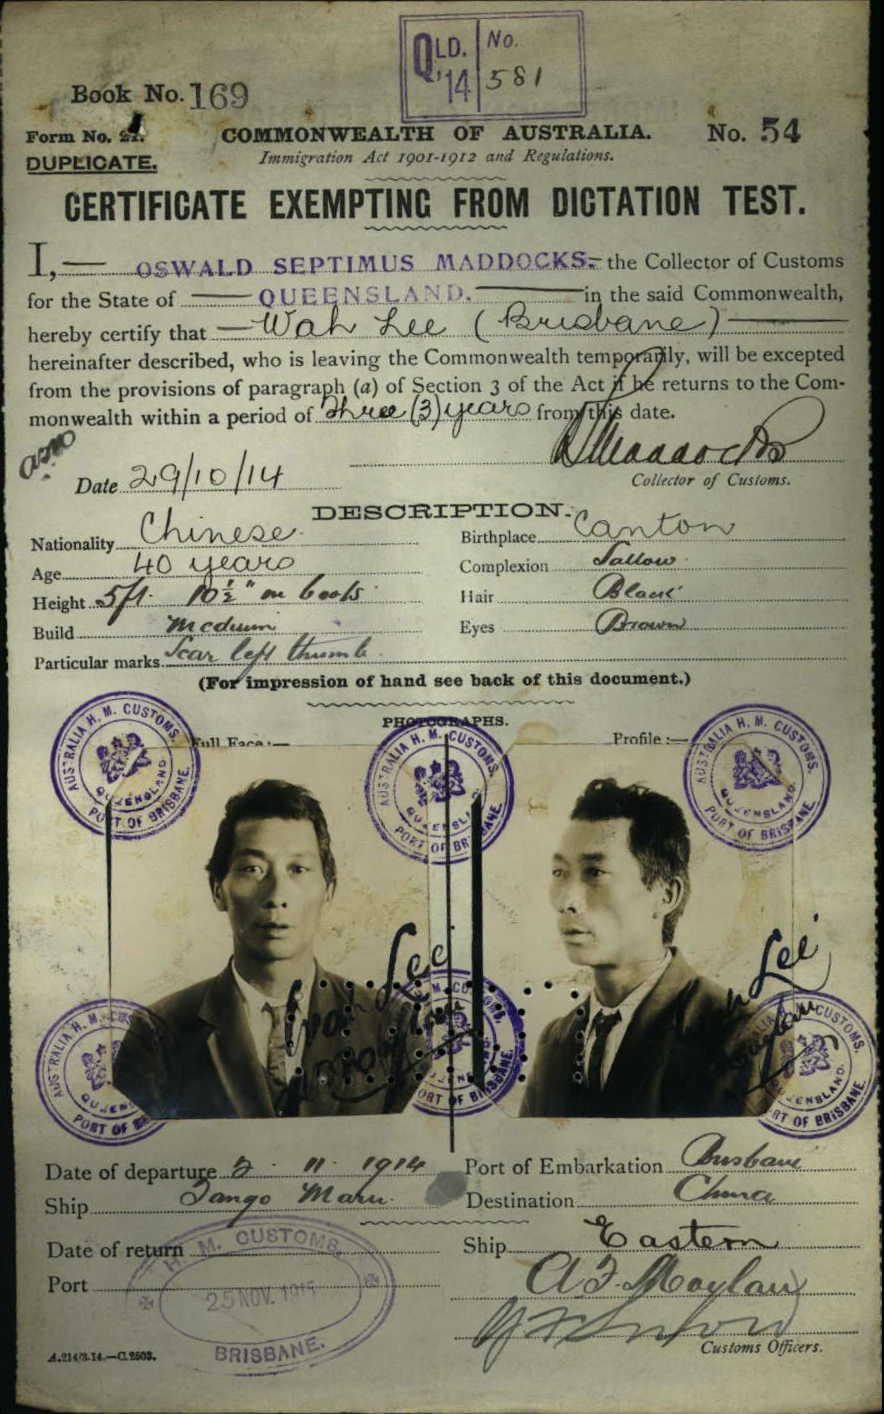 QLD. '14 No. 581
Book No. 169
Form No. 21.
COMMONWEALTH OF AUSTRALIA.
No. 54
DUPLICATE.
Immigration Act 1901-1912 and Regulations.
CERTIFICATE EXEMPTING FROM DICTATION TEST.
I, OSWALD SEPTIMUS MADDOCKS, the Collector of Customs
for the State of QUEENSLAND. in the said Commonwealth,
hereby certify that Wah Lee (Brisbane)
hereinafter described, who is leaving the Commonwealth temporarily, will be excepted
from the provisions of paragraph (a) of Section 3 of the Act if he returns to the Com-
monwealth within a period of Three (3) years from this date.
OSMaddocks
Date 29/10/14
Collector of Customs.
DESCRIPTION.
Nationality Chinese. Birthplace Canton
Age 40 years Complexion Sallow
Height 5ft. 10½" in boots Hair Black
Build Medium Eyes Brown
Particular marks Scar left thumb
(For impression of hand see back of this document.)
PHOTOGRAPHS.
Full Face:— Profile:—
AUSTRALIA H. M. CUSTOMS. QUEENSLAND PORT OF BRISBANE.
AUSTRALIA H. M. CUSTOMS. QUEENSLAND PORT OF BRISBANE.
AUSTRALIA H. M. CUSTOMS. QUEENSLAND PORT OF BRISBANE.
Wah Lee
Lee
AUSTRALIA H. M. CUSTOMS. QUEENSLAND PORT OF BRISBANE.
M. CUSTOMS. PORT OF BRISBANE.
AUSTRALIA CUSTOMS. QUEENSLAND. PORT OF BRISBANE.
Date of departure 2 . 11 . 1914 Port of Embarkation Brisbane
Ship Tango Maru Destination China
Date of return Ship Eastern
Port A J Moylan
H. M. CUSTOMS. 25 NOV. 1915 BRISBANE.
Customs Officers.
A.214/3.14.—C.2503.